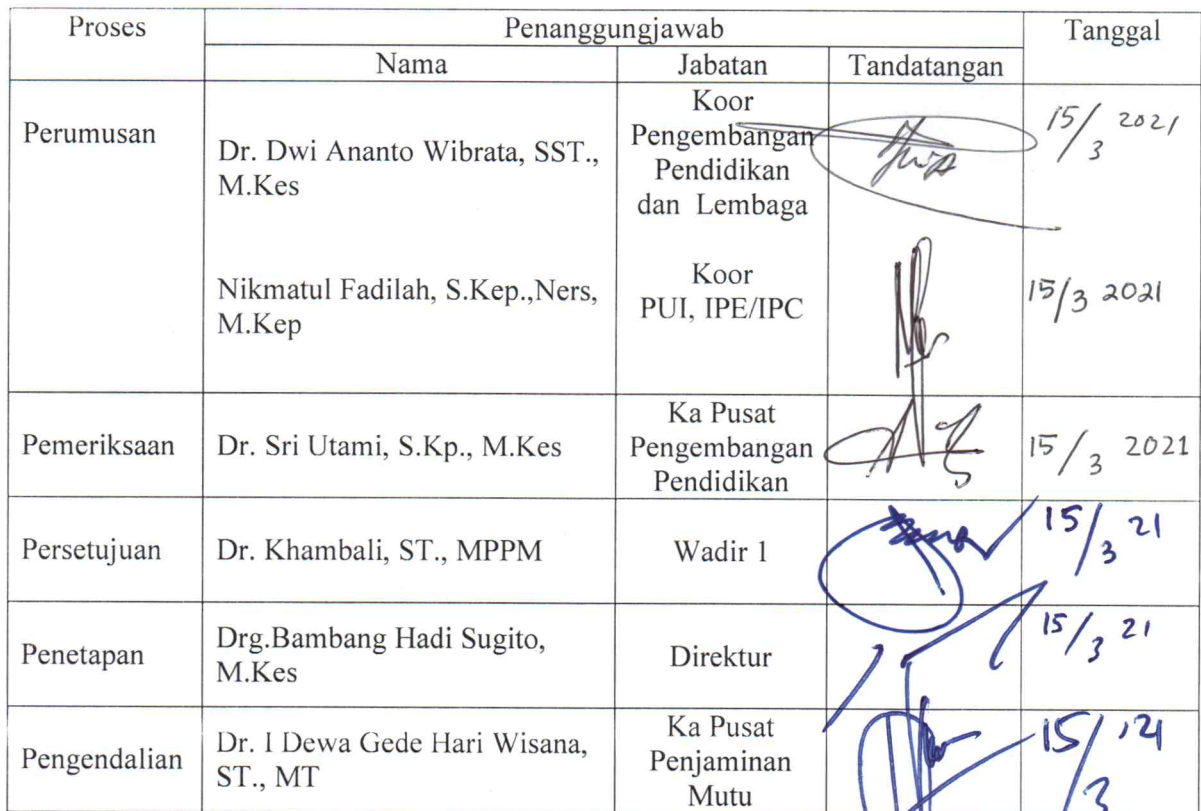 Proses Penanggungjawab Tanggal
Nama Jabatan Tandatangan
Perumusan
Dr. Dwi Ananto Wibrata, SST.,
M.Kes
Koor
Pengembangan
Pendidikan
dan Lembaga
15/3 2021
Nikmatul Fadilah, S.Kep.,Ners,
M.Kep
Koor
PUI, IPE/IPC
15/3 2021
Pemeriksaan
Dr. Sri Utami, S.Kp., M.Kes
Ka Pusat
Pengembangan
Pendidikan
15/3 2021
Persetujuan
Dr. Khambali, ST., MPPM
Wadir 1
15/3 21
Penetapan
Drg.Bambang Hadi Sugito,
M.Kes
Direktur
15/3 21
Pengendalian
Dr. I Dewa Gede Hari Wisana,
ST., MT
Ka Pusat
Penjaminan
Mutu
15/3 '21